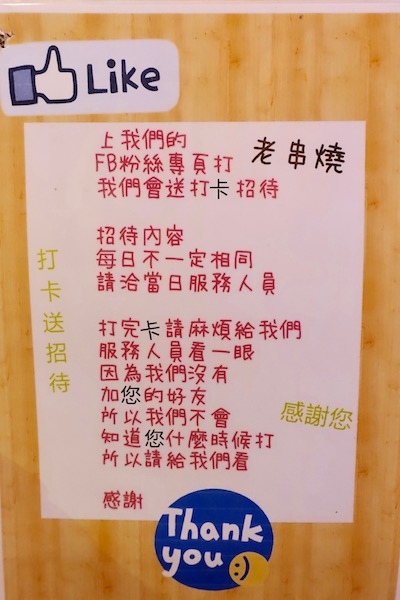 Like
老串燒
上我們的
FB粉絲專頁打
我們會送打卡招待
招待內容
每日不一定相同
請洽當日服務人員
打卡送招待
打完卡請麻煩給我們
服務人員看一眼
因為我們沒有
加您的好友
所以我們不會
知道您什麼時候打
所以請給我們看
感謝您
感謝
Thank
you